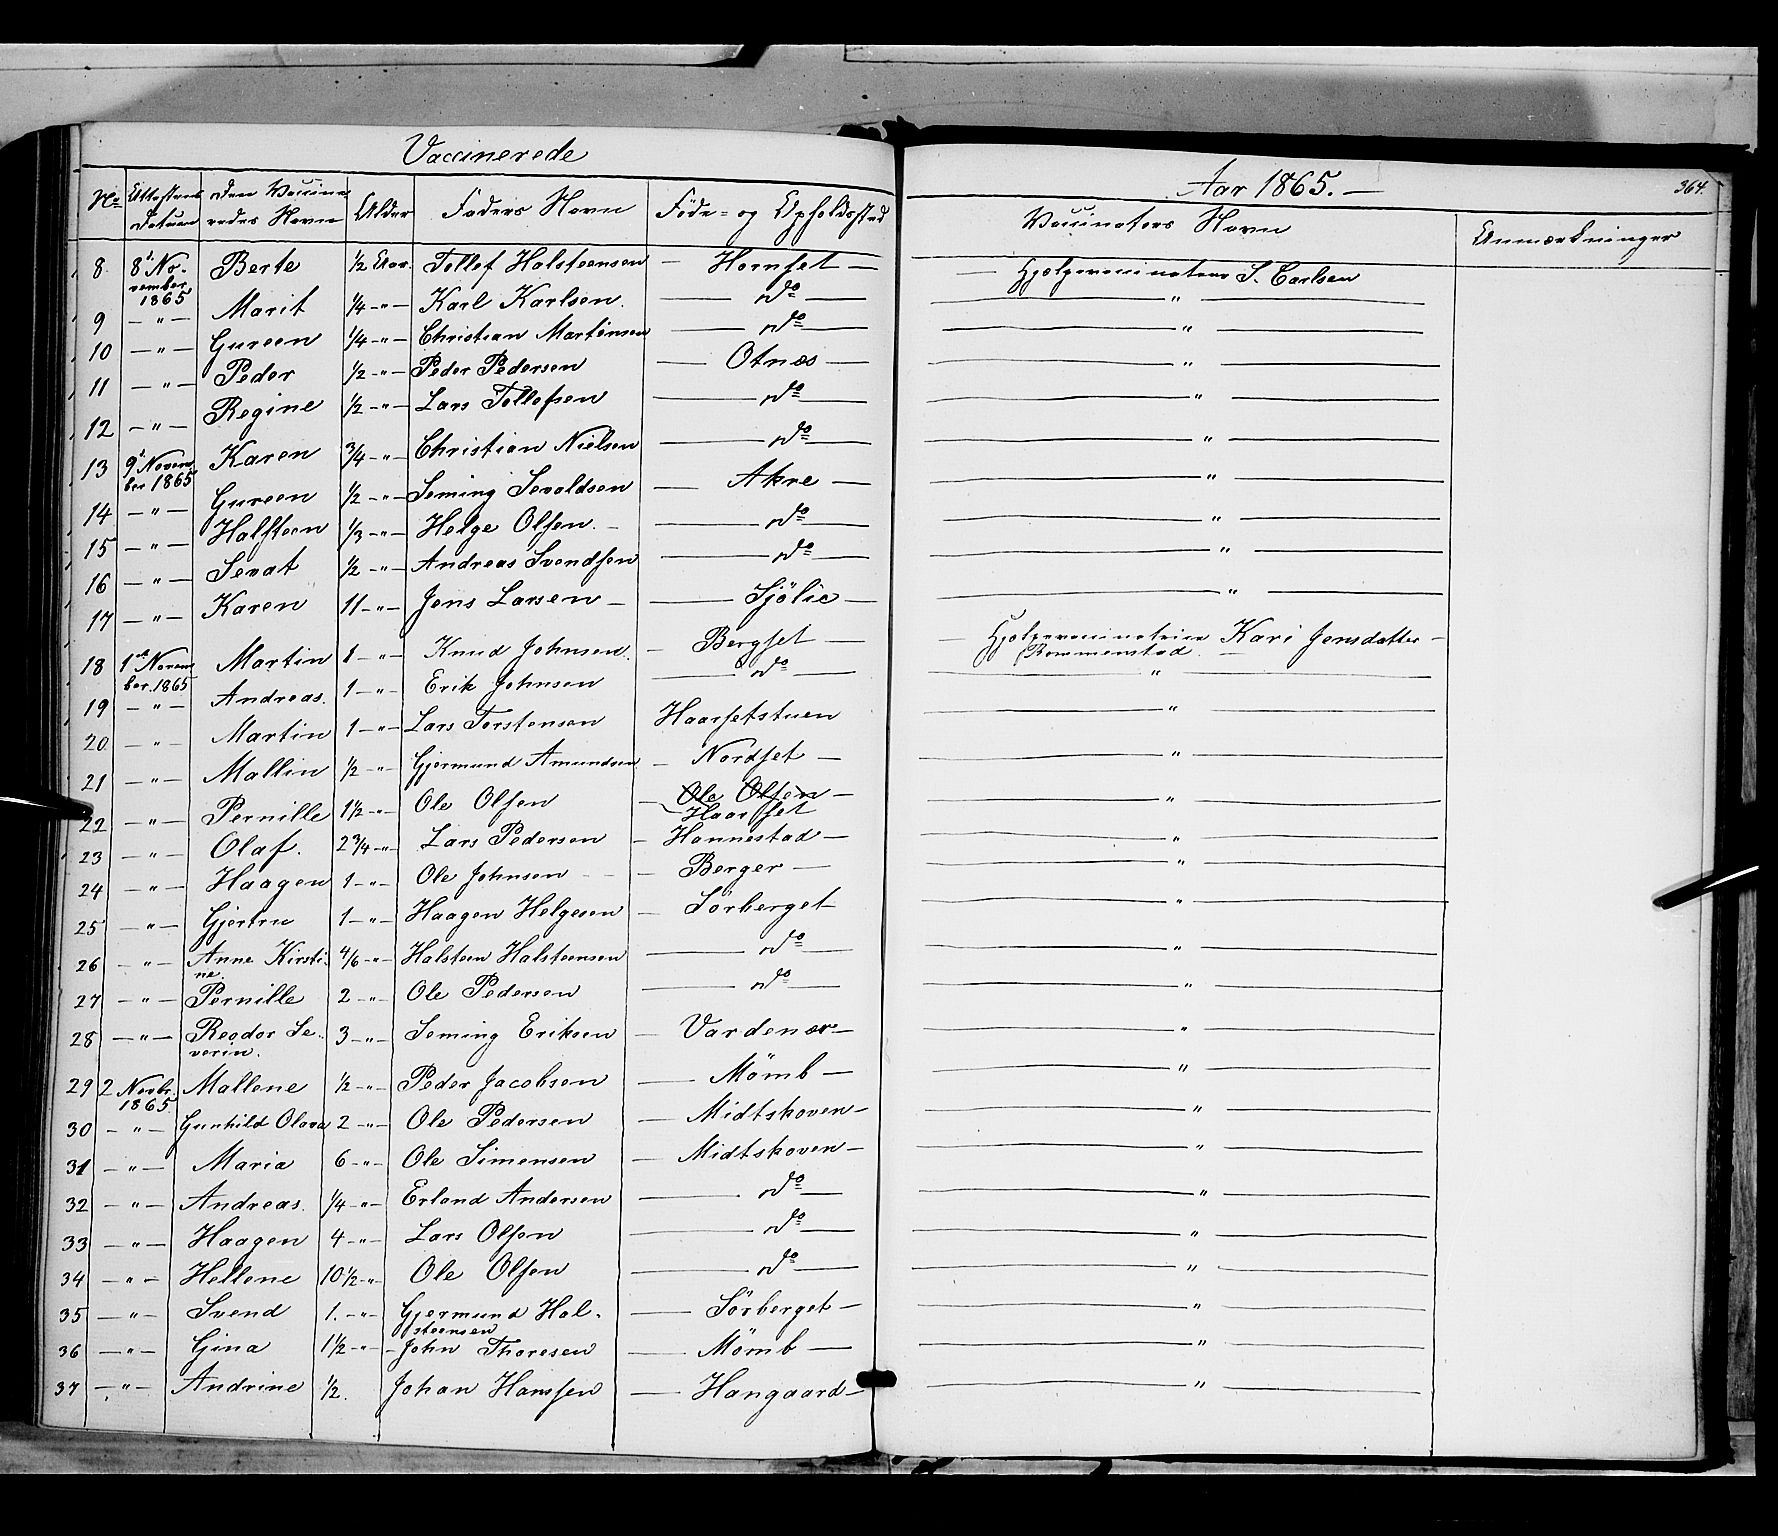 Vaccinerede
Aar 1865. —
364.
No Attestens Datum Den Vaccineredes Navn Alder Faders Navn Føde- og Opholdssted Vaccinators Navn Anmærkninger
8 8de November 1865 Berte 1/2 Aar. Tollef Halsteensen — Hornset — Hjælpevaccinateur S. Carlsen
9 — " — Marit 1/4 -"- Karl Karlsen. — do — — " —
10 — " — Gureen 1/4 -"- Christian Martinsen — do — — " —
11 — " — Peder 1/2 -"- Peder Pedersen — Otnæs — — " —
12 — " — Regine 1/2 -"- Lars Tollefsen — do — — " —
13 9de November 1865 Karen 3/4 -"- Christian Nielsen — do — — " —
14 — " — Gureen 1/2 -"- Seming Sevaldsen — Akre — — " —
15 — " — Halsteen 1/3 -"- Helge Olsen. — do — — " —
16 — " — Sevat 1/2 -"- Andreas Svendsen — do — — " —
17 — " — Karen 11 -"- Jens Larsen — Sjölie — — " —
18 1ste November 1865 Martin 1 -"- Knud Johnsen. — Bergset — — Hjælpevaccinatrice Kari Jensdatter —
Rommenstad. —
19 — " — Andreas. 1 -"- Erik Johnsen — do — — " —
20 — " — Martin 1 -"- Lars Torstensen Haarsetstuen — " —
21 — " — Mallin 1/2 -"- Gjermund Amundsen — Nordset — — " —
22 — " — Pernille 1 1/2 -"- Ole Olsen — Ole Olsen — — " —
Haarset
23 — " — Olaf. 2 3/4 -"- Lars Pedersen — Hannestad — — " —
24 — " — Haagen 1 -"- Ole Johnsen — Berger — — " —
25 — " — Gjertru 1 -"- Haagen Helgesen — Sörberget — " —
26 — " — Anne Kirstine. 4/6 -"- Halsteen Halsteensen — do — — " —
27 — " — Pernille 2 -"- Ole Pedersen — do — — " —
28 — " — Reodor Severin. 3 -"- Seming Eriksen — Vardenær — — " —
29 2 Novbr. 1865 Mallene 1/2 -"- Peder Jacobsen — Mömb — — " —
30 — " — Gunhild Olava 2 -"- Ole Pedersen — Midtskoven — — " —
31 — " — Maria 6 -"- Ole Simensen — Midtskoven — — " —
32 — " — Andreas. 1/4 -"- Erland Andersen — do — — " —
33 — " — Haagen 4 -"- Lars Olsen — do — — " —
34 — " — Hellene 10 1/2 -"- Ole Olsen — do — — " —
35 — " — Svend 1. -"- Gjermund Halsteensen — Sörberget — — " —
36 — " — Gina 1 1/2 -"- John Thoresen — Mömb — — " —
37 — " — Andrine 1/2. Johan Hansen — Hangaard — — " —